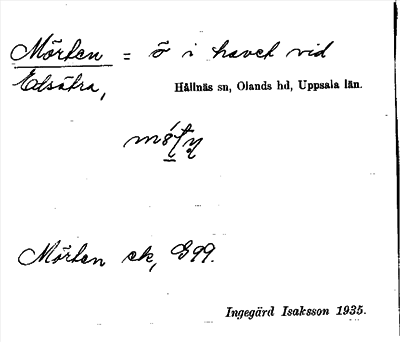 Mörten = ö i havet vid
Edsätra,
Hållnäs sn, Olands hd, Uppsala län.
Mörten ek, E99.
Ingegärd Isaksson 1935.